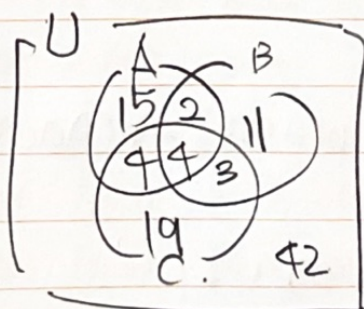 U
A B
15 2 11
4 4 3
19
C. 42